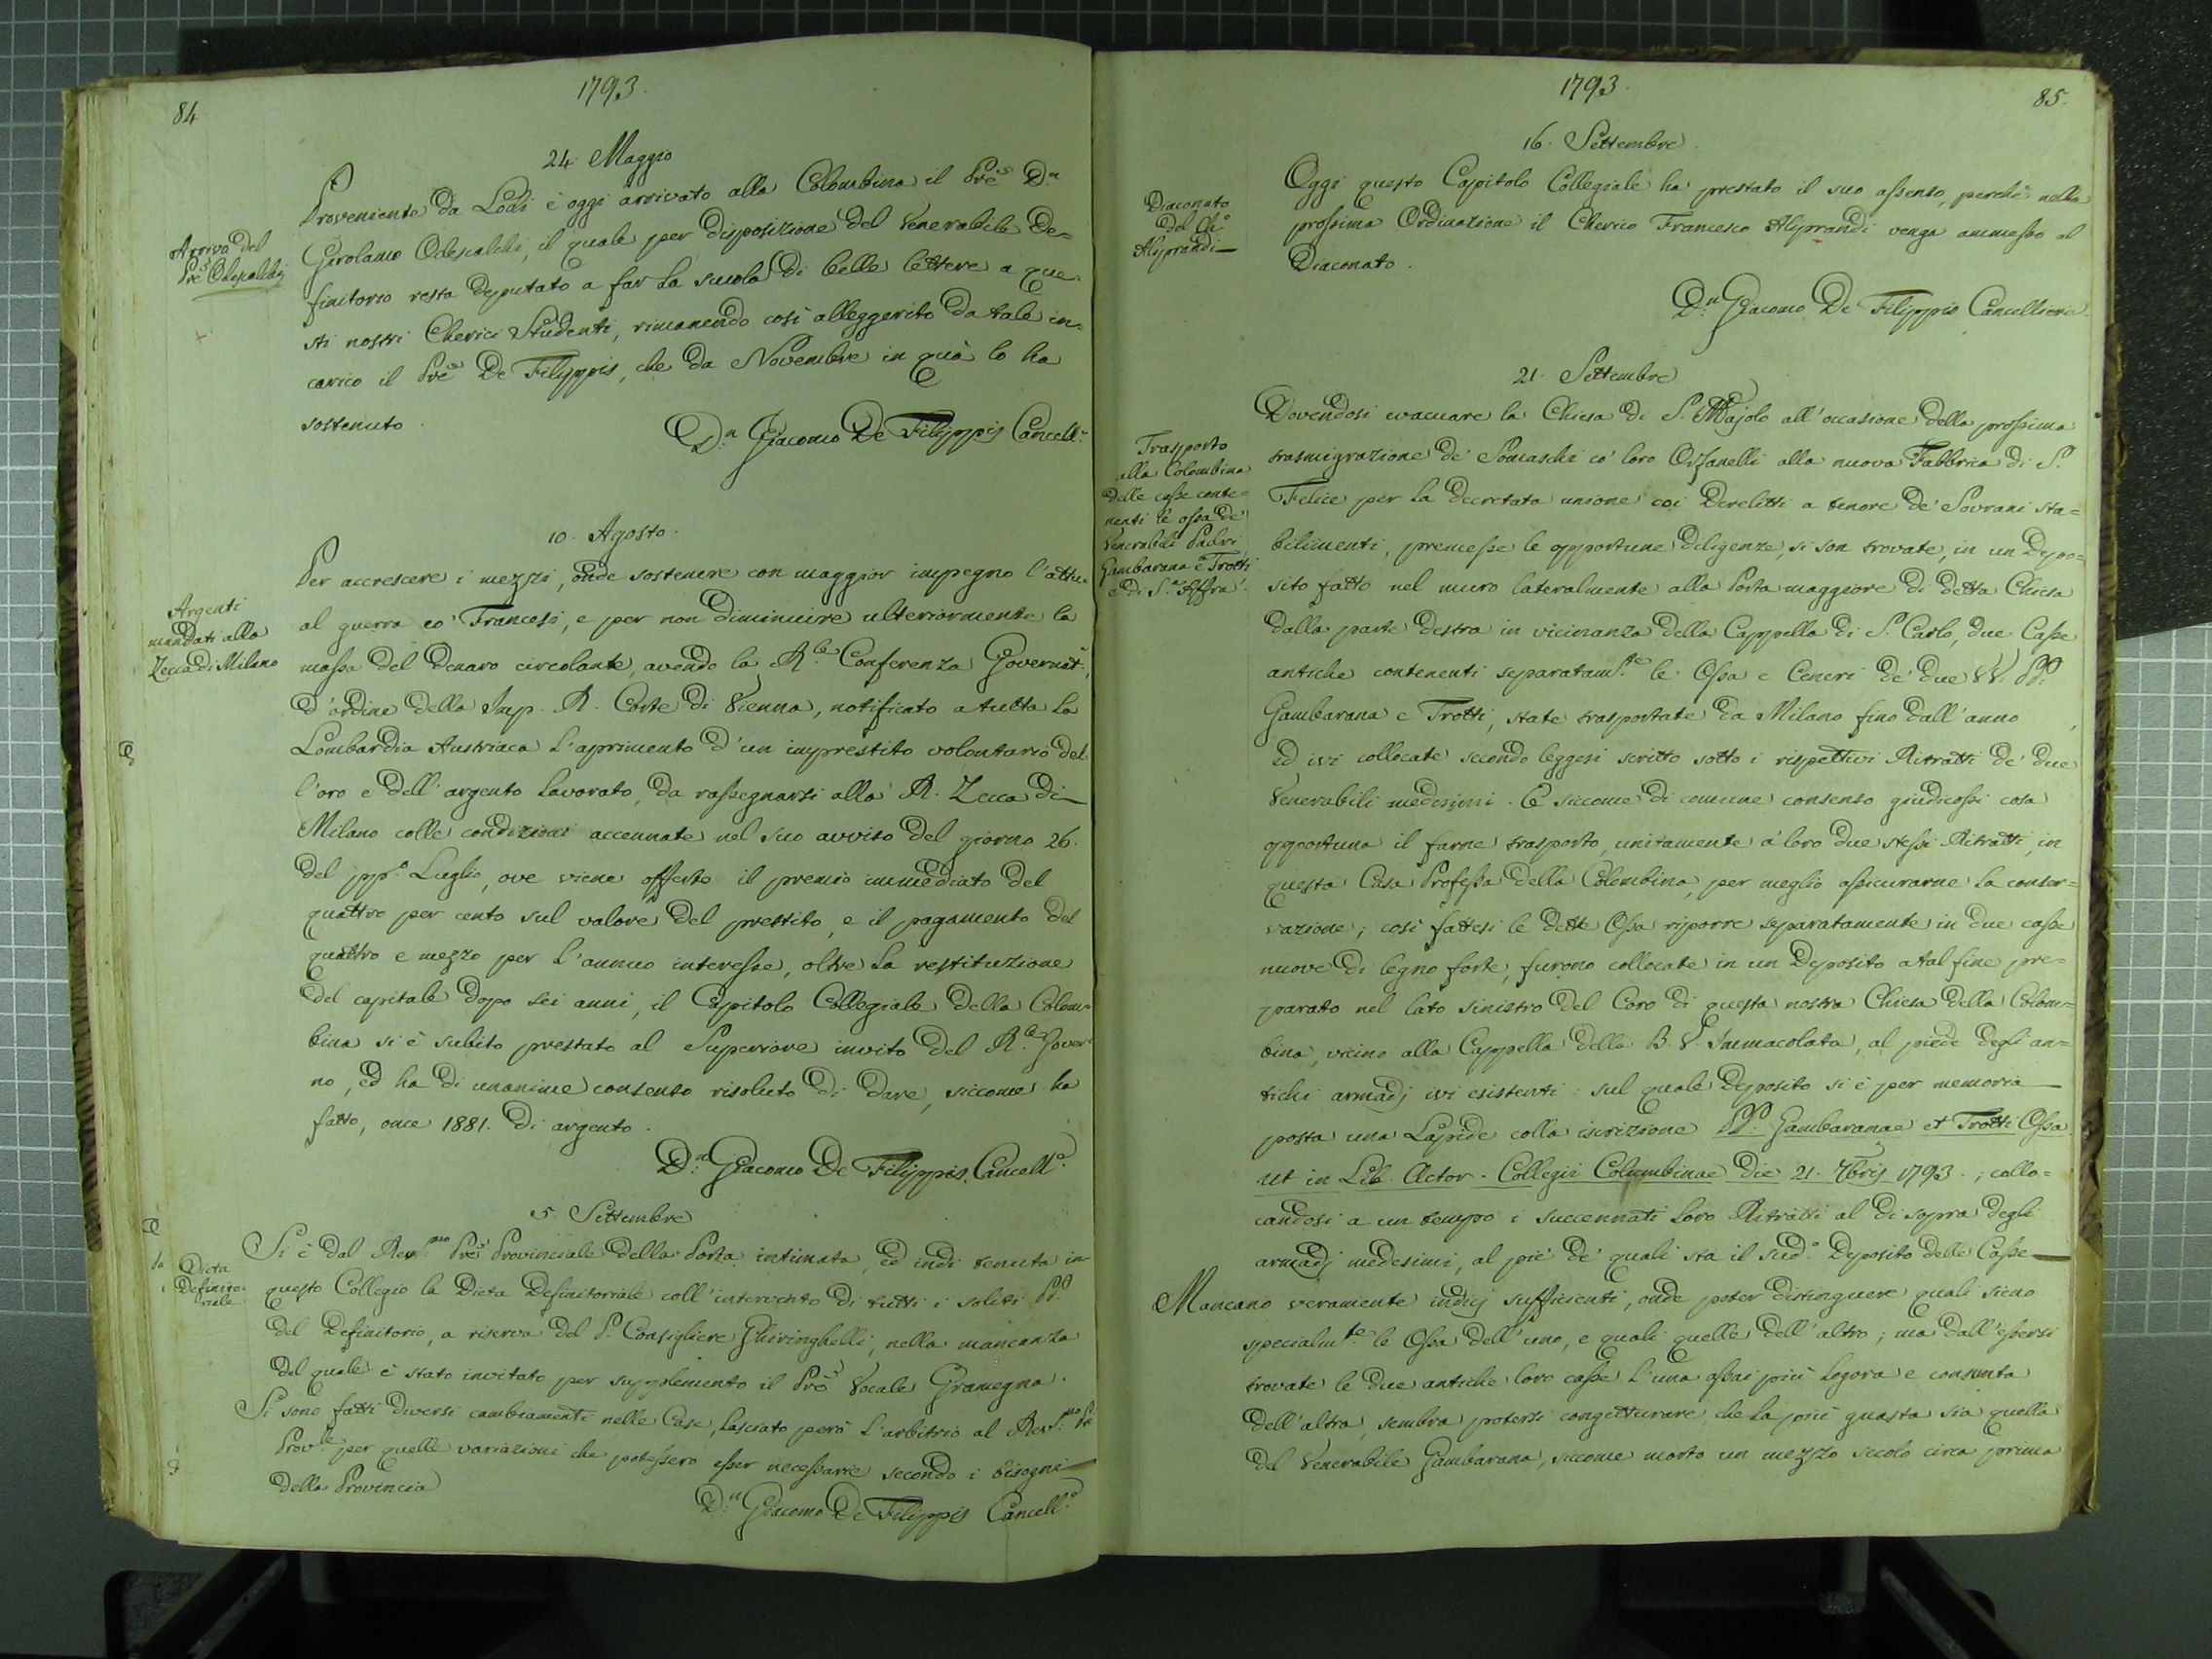 84
1793.
24. Maggio
Arrivo del
Pre Odescalchi
Proveniente da Lodi è oggi arrivato alla Colombina il Pre Dn
Girolamo Odescalchi, il quale per disposizione del Venerabile De=
finitorio resta deputato a far la scuola di belle lettere a que=
sti nostri Cherici Studenti, rimanendo così alleggerito da tale in=
carico il Pre De Filippis, che da Novembre in quà lo ha
sostenuto.
D.n Giacomo De Filippis Cancell.e
10. Agosto.
Argenti
mandati alla
Zecca di Milano
Per accrescere i mezzi, onde sostenere con maggior impegno l'attu=
al guerra co' Francesi, e per non diminuire ulteriormente la
massa del denaro circolante, avendo la R.le Conferenza Governat.a,
d'ordine della Imp. R. Corte di Vienna, notificato a tutta la
Lombardia Austriaca l'aprimento d'un imprestito volontario del
l'oro e dell'argento lavorato, da rassegnarsi alla R. Zecca di
Milano colle condizioni accennate nel suo avviso del giorno 26.
del pp.o Luglio, ove viene offerto il premio immediato del
quattro per cento sul valore del prestito, e il pagamento del
quattro e mezzo per l'annuo interesse, oltre la restituzione
del capitale dopo sei anni, il Capitolo Collegiale della Colom=
bina si è subito prestato al Superiore invito del R.le Gover=
no, ed ha di unanime consenso risoluto di dare, siccome ha
fatto, once 1881. di argento.
D.n Giacomo De Filippis Cancell.e
5. Settembre
Dieta
Definito=
riale
Si è dal Rev.mo Pre Provinciale della Porta intimata, ed indi tenuta in
questo Collegio la Dieta Definitoriale coll'intervento di tutti i soliti PP.
del Definitorio, a riserva del P. Consigliere Ghiringhelli, nella mancanza
del quale è stato invitato per supplemento il Pre Vocale Gramegna.
Si sono fatti diversi cambiamenti nelle Case, lasciato però l'arbitrio al Rev.mo Pre
Prov.le per quelle variazioni che potessero esser necessarie secondo i bisogni
della Provincia
D.n Giacomo De Filippis Cancell.e
1793.
85.
16. Settembre.
Diaconato
del Ch.o
Aliprandi
Oggi questo Capitolo Collegiale ha prestato il suo assenso, perchè nella
prossima Ordinazione il Cherico Francesco Aliprandi venga ammesso al
Diaconato.
D.n Giacomo De Filippis Cancelliere.
21. Settembre
Trasporto
alla Colombina
delle casse conte=
nenti le ossa de'
Venerabili Padri
Gambarana e Trotti
e di S.a Affra.
Dovendosi evacuare la Chiesa di S. Majolo all'occasione della prossima
trasmigrazione de' Somaschi co' loro Orfanelli alla nuova Fabbrica di S.
Felice per la decretata unione coi Derelitti a tenore de' Sovrani sta=
bilimenti, premesse le opportune diligenze, si son trovate, in un Depo=
sito fatto nel muro lateralmente alla Porta maggiore di detta Chiesa
dalla parte destra in vicinanza della Cappella di S. Carlo, due Casse
antiche contenenti separatam.te le Ossa e Ceneri de' due VV. PP.
Gambarana e Trotti, state trasportate da Milano fino dall'anno ,
ed ivi collocate secondo leggesi scritto sotto i rispettivi Ritratti de' due
Venerabili medesimi. E siccome di comune consenso giudicossi cosa
opportuna il farne trasporto, unitamente a' loro due stessi Ritratti, in
questa Casa Professa della Colombina, per meglio assicurarne la conser=
vazione; così fattesi le dette Ossa riporre separatamente in due casse
nuove di legno forte, furono collocate in un Deposito a tal fine pre=
parato nel lato sinistro del Coro di questa nostra Chiesa della Colom=
bina, vicino alla Cappella della B. V. Immacolata, al piede degli an=
tichi armadj ivi esistenti: sul quale Deposito si è per memoria
posta una Lapide colla iscrizione PP. Gambaranae et Trotti Ossa.
ut in Lib. Actor. Collegii Columbinae die 21. 7bris 1793.; collo=
candosi a un tempo i succennati loro Ritratti al di sopra degli
armadj medesimi, al piè de' quali sta il sud.o Deposito delle Casse
Mancano veramente indicj sufficienti, onde poter distinguere quali sieno
specialm.te le Ossa dell'uno, e quali quelle dell'altro; ma dall'essersi
trovate le due antiche loro casse l'una assai più logora e consunta
dell'altra, sembra potersi congetturare che la più guasta sia quella
del Venerabile Gambarana, siccome morto un mezzo secolo circa prima